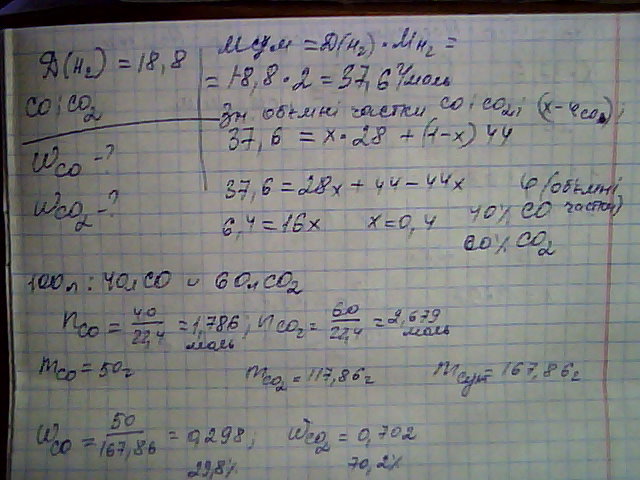 Д(H₂) = 18,8
CO і CO₂
W CO - ?
W CO₂ - ?
M сум = Д(H₂) · M H₂ =
= 18,8 · 2 = 37,6 г/моль
Зн. об'ємні частки CO і CO₂; (x - φ CO);
37,6 = x · 28 + (1-x) 44
37,6 = 28x + 44 - 44x
φ (об'ємні частки)
6,4 = 16x x = 0,4 40% CO
60% CO₂
100л : 40л CO и 60л CO₂
n CO = 40/22,4 = 1,786 моль; n CO₂ = 60/22,4 = 2,679 моль
m CO = 50г m CO₂ = 117,86г m сум = 167,86г
W CO = 50/167,86 = 0,298; W CO₂ = 0,702
29,8% 70,2%